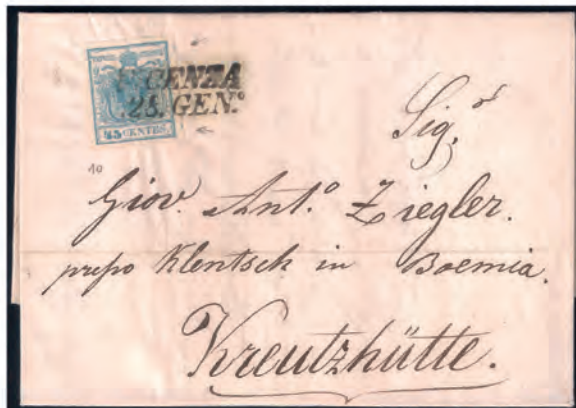 VICENZA
25. GEN.º
45 CENTES
10
Sig.r
Giov. Ant.º Ziegler.
prefso Klentsch in Boemia.
Kreutzhütte.